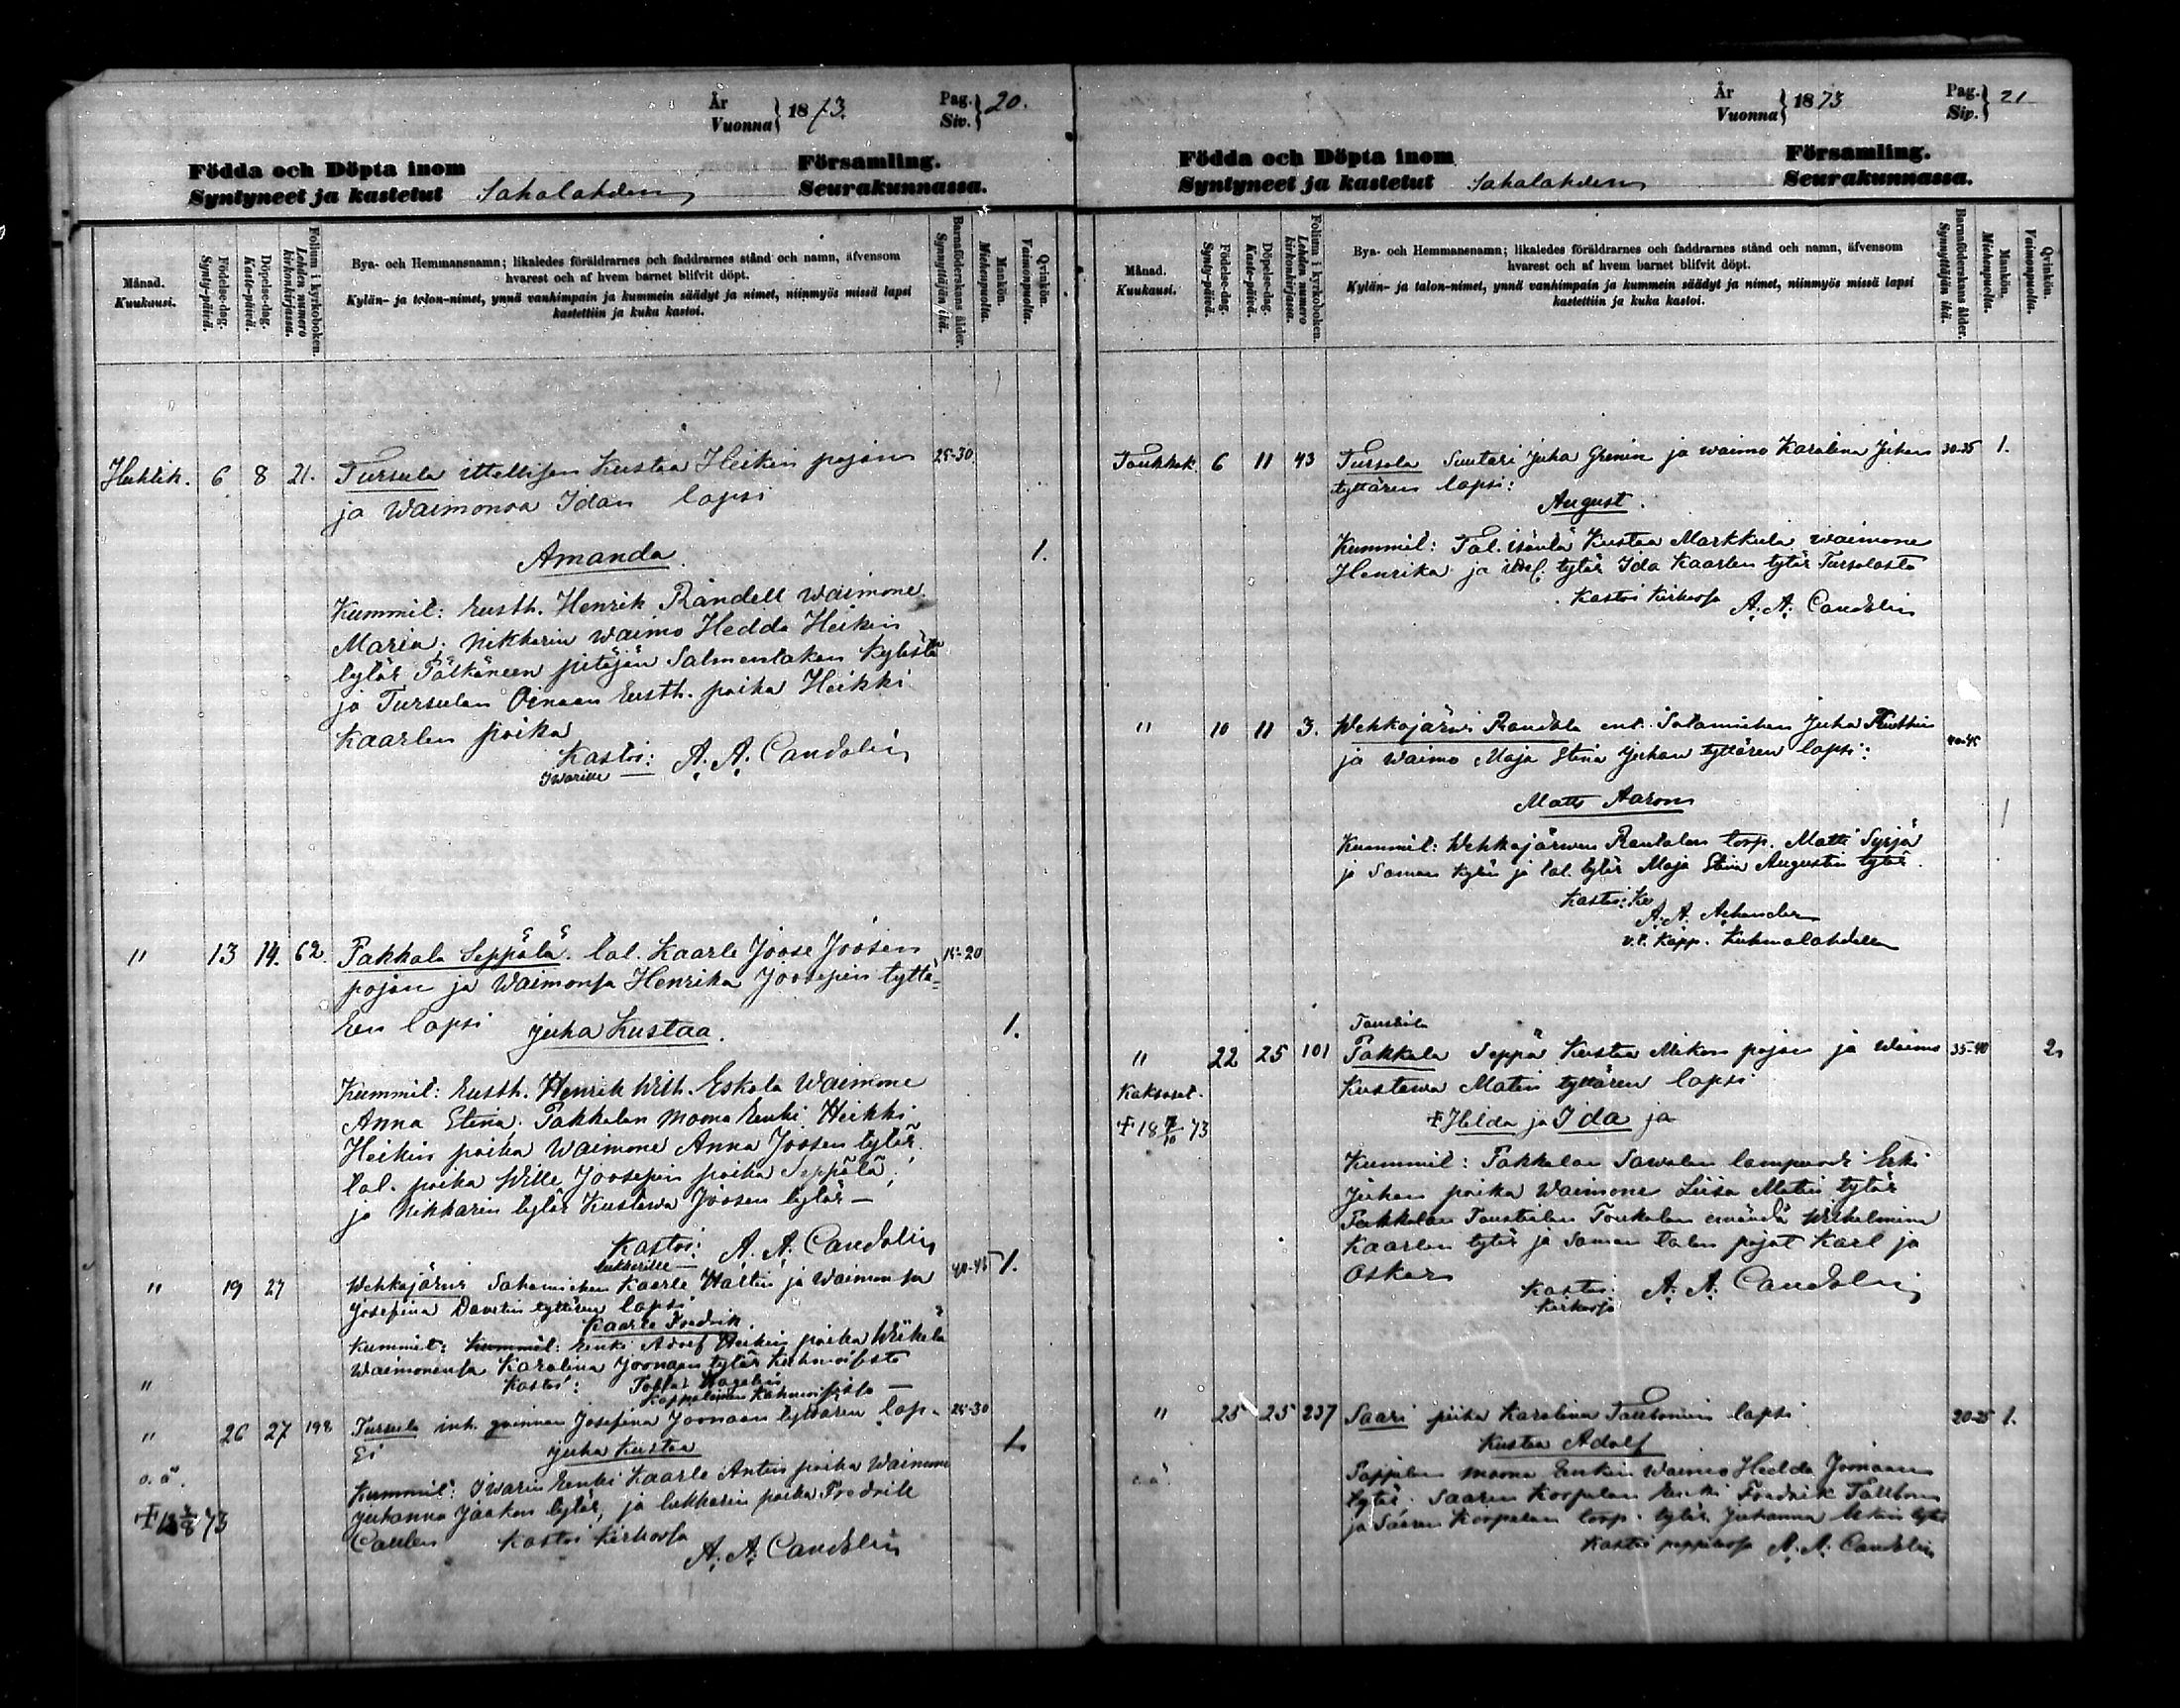 År
Vuonna } 1873.
Pag.
Siv. } 20.
Födda och Döpta inom Församling.
Syntyneet ja kastetut Sahalahden Seurakunnassa.
Månad.
Kuukausi.
Födelse-dag.
Synty-päivä.
Döpelse-dag.
Kaste-päivä.
Folium i kyrkoboken.
Lehden numero kirkonkirjassa.
Bya- och Hemmansnamn; likaledes föräldrarnes och faddrarnes stånd och namn, äfvensom
hvarest och af hvem barnet blifvit döpt.
Kylän- ja talon-nimet, ynnä vanhimpain ja kummein säädyt ja nimet, niinmyös missä lapsi
kastettiin ja kuka kastoi.
Barnaföderskans ålder.
Synnyttäjän ikä.
Mankön.
Miehenpuolta.
Qvinkön.
Vaimonpuolta.
Huhtik. 6 8 21. Tursula ittellisen Kustaa Heikin pojan 25-30
ja Waimonsa Idan lapsi
Amanda. 1.
Kummit: Eusth. Henrik Rändell waimone
Maria; Nikkarin waimo Hedda Heikin
tytär Pälkäneen pitäjän Salmentakan kylästä
ja Tursulan Oinaan Eusth. poika Heikki
Kaarlen poika
Kastoi: A. A. Candolin
Iwarille
" 13 14. 62. Pakkala Seppälä. tal. Kaarle Joose Joosen 15-20
pojan ja Waimonsa Henrika Joosepin tyttä-
ren lapsi Juha Kustaa. 1.
Kummit: Eusth. Henrik Wilh. Eskola Waimone
Anna Stina. Pakkalan Moma Renki Heikki
Heikin poika Waimone Anna Joosen tytär.
tal. poika Wille Joosepin poika Seppälä,
ja Nikkarin tytär Kustawa Joosen tytär —
Kastoi: A. A. Candolin
lukkarille
" 19 27 Wehkajärvi Sahamiehen Kaarle Martin ja Waimonsa 40-45 1.
Josefina Davetin tyttären lapsi
Kaarle Fredrik.
Kummit: Kummit: Renki Adolf Heikin poika Wiikala
Waimonensa Karolina Joonaan tytär Kuhmoisista
" Kastoi: Tobias Hagelin
Kappalainen Kuhmoisista —
" 26 27 198 Tursula inh. Josefina Joonaan tyttären lap- 25-30
si Juha Kustaa 1.
o. ä. Kummit: Iwarin Renki Kaarle Antin poika Waimone
Juhanna Jaakon tytär, ja lukkarin poika Fredrik
† 18 2/8 73 Caulen Kastoi Kirkossa
A. A. Candolin
År
Vuonna } 1873
Pag.
Siv. } 21
Födda och Döpta inom Församling.
Syntyneet ja kastetut Sahalahden Seurakunnassa.
Månad.
Kuukausi.
Födelse-dag.
Synty-päivä.
Döpelse-dag.
Kaste-päivä.
Folium i kyrkoboken.
Lehden numero kirkonkirjassa.
Bya- och Hemmansnamn; likaledes föräldrarnes och faddrarnes stånd och namn, äfvensom
hvarest och af hvem barnet blifvit döpt.
Kylän- ja talon-nimet, ynnä vanhimpain ja kummein säädyt ja nimet, niinmyös missä lapsi
kastettiin ja kuka kastoi.
Barnaföderskans ålder.
Synnyttäjän ikä.
Mankön.
Miehenpuolta.
Qvinkön.
Vaimonpuolta.
Toukkok 6 11 43 Tursola Suutari Juha Grenin ja waimo Karolina Juhan 30-35 1.
tyttären lapsi:
August.
Kummit: Tal. isäntä Kustaa Markkula waimone
Henrika ja tytär Ida Kaarlen tytär Tursolasta
Kastoi Kirkossa A. A. Candolin
" 10 11 3. Wehkajärvi Rautala ent. Sotamiehen Juha 40-45
ja waimo Maja Stina Juhan tyttären lapsi:
Matts Aaron 1
Kummit: Wehkajärwen Rautalan torp. Matti Syrjä
ja saman kylän ja tal. tytär Maja Stina Augustin tytär.
Kastoi: Ke
A. A.
v.t. Kapp. Kuhmalahdella
Taustiala
" 22 25 101 Pakkala Seppä Kustaa Mikon pojan ja Waimo 35-40 2.
Kaksoset. Kustawa Matin tyttären lapsi
† 18 10 73 † Hilda ja Ida ja
Kummit: Pakkalan Sawolan lampuodi Erki
Juhan poika Waimone Liisa Matin tytär
Pakkalan Taustialan Toukolan emändä Wilhelmina
Kaarlen tytär ja saman talon pojat Karl ja
Oskar
Kastoi: A. A. Candolin
Kirkossa
" 25 25 237 Saari piika Karolina Tallbomin lapsi 20-25 1.
Kustaa Adolf
o. ä. Pappilan moona Renkin waimo Hedda Joonaan
tytär. Saaren Korpelan Renki Fredrik Tallbom
ja Saaren Korpelan torp. tytär Juhanna tytär
Kastoi pappilassa A. A. Candolin